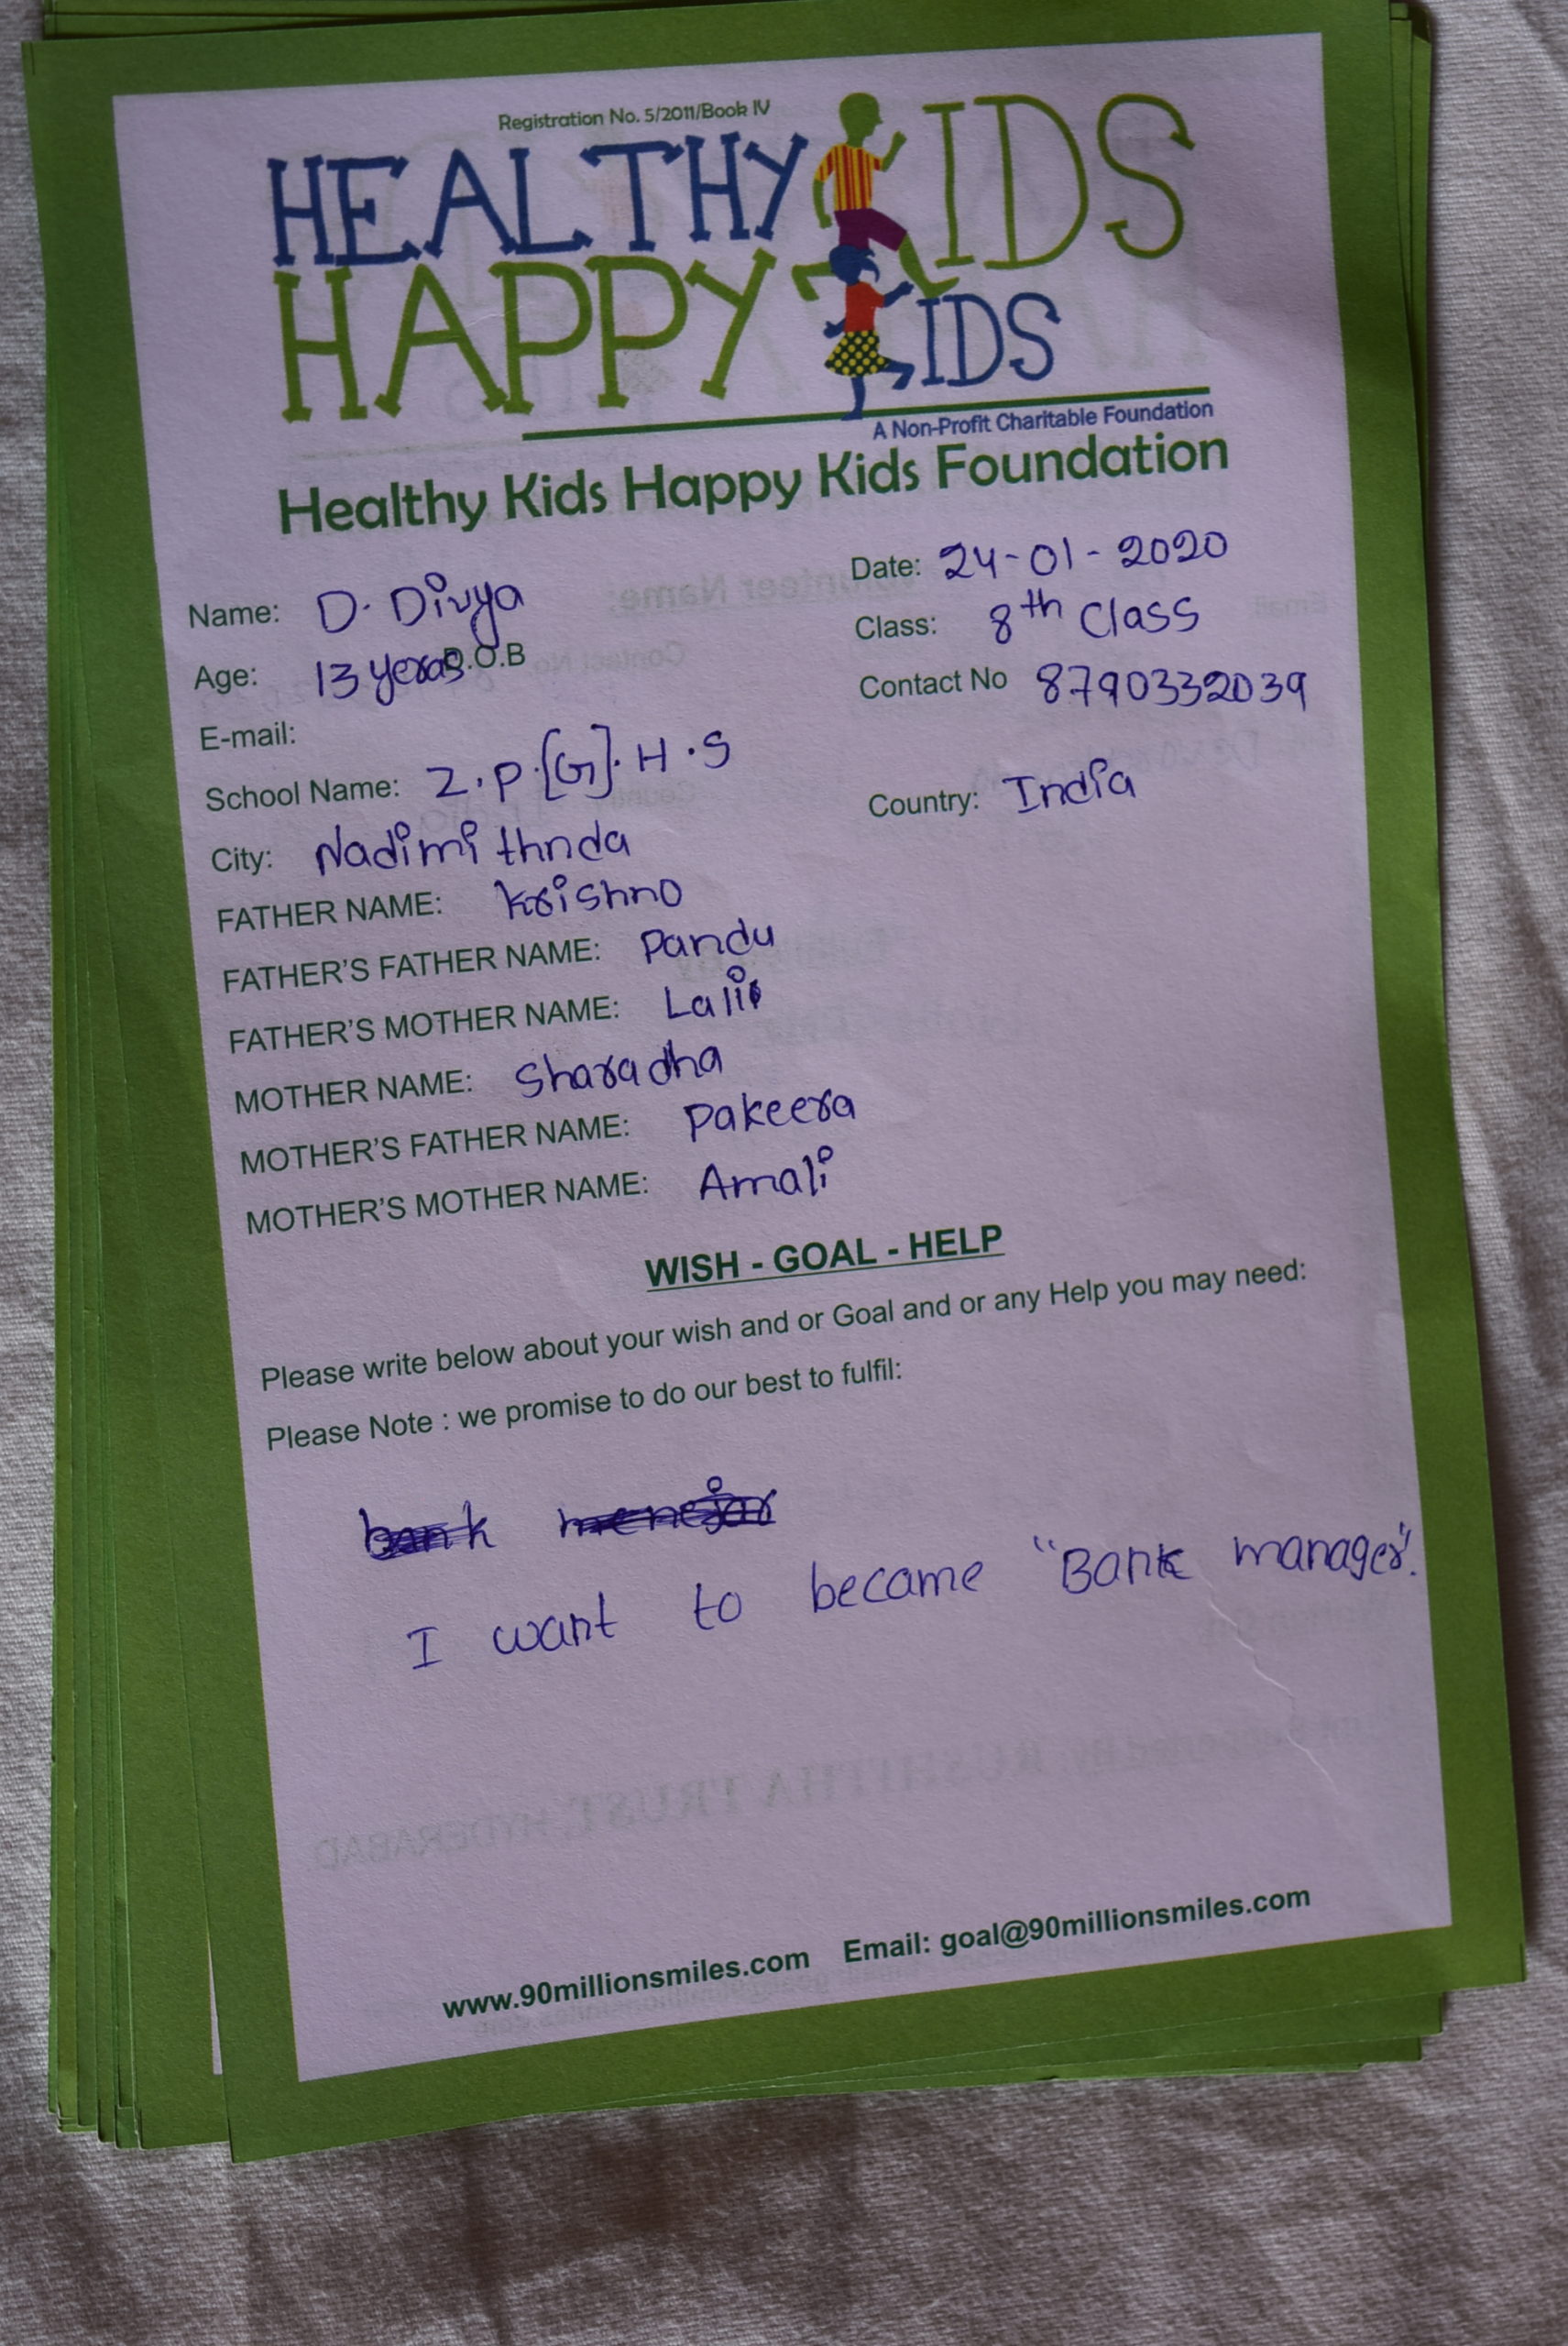 Registration No. 5/2011/Book IV
HEALTHY KIDS
HAPPY KIDS
A Non-Profit Charitable Foundation
Healthy Kids Happy Kids Foundation
Date: 24-01-2020
Name: D. Divya
Class: 8th Class
Age: 13 yeras D.O.B
Contact No 8790332039
E-mail:
School Name: Z.P.[G].H.S
Country: India
City: Nadimi thnda
FATHER NAME: Krishno
FATHER'S FATHER NAME: Pandu
FATHER'S MOTHER NAME: Lali
MOTHER NAME: Sharadha
MOTHER'S FATHER NAME: Pakeera
MOTHER'S MOTHER NAME: Amali
WISH - GOAL - HELP
Please write below about your wish and or Goal and or any Help you may need:
Please Note : we promise to do our best to fulfil:
bank menejar
I want to became "Bank manager".
www.90millionsmiles.com Email: goal@90millionsmiles.com